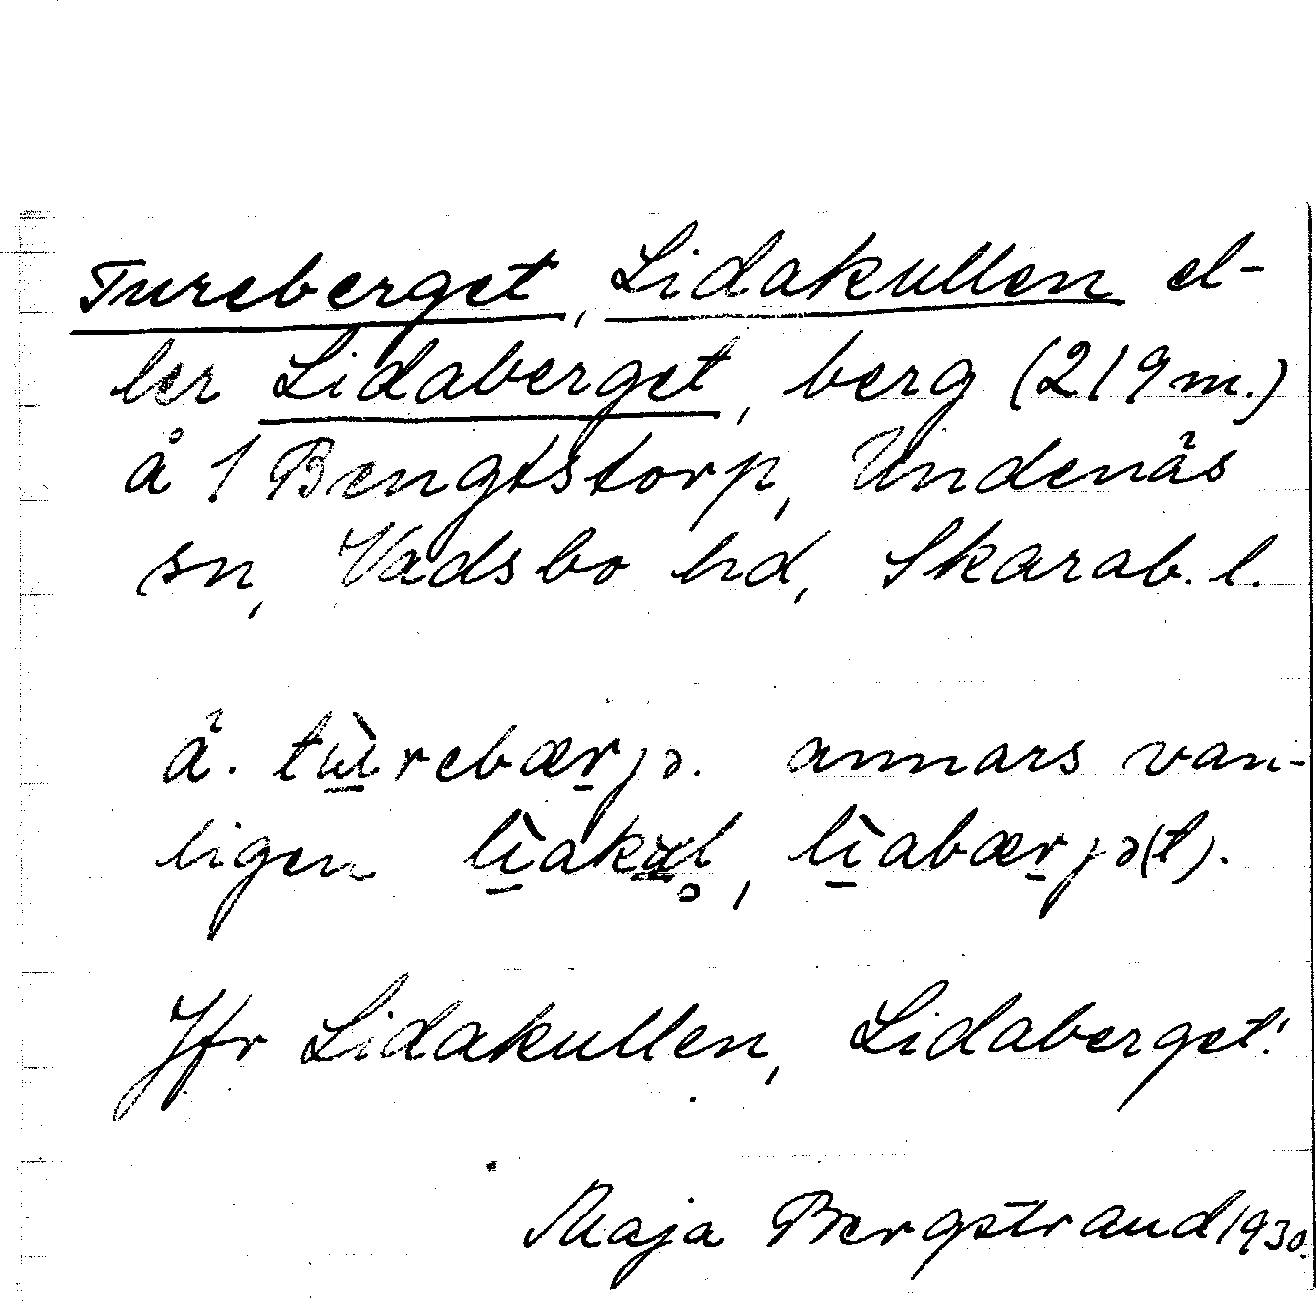 Tureberget, Lidakullen el-
ler Lidaberget, berg (219 m.)
å 1 Bengtstorp, Undenäs
sn, Vadsbo hd, Skarab. l.
ä. tɯ̀rebærjə. annars van-
ligen lìakul̥, lìabærjə(t).
Jfr Lidakullen, Lidaberget!
Maja Bergstrand 1930.